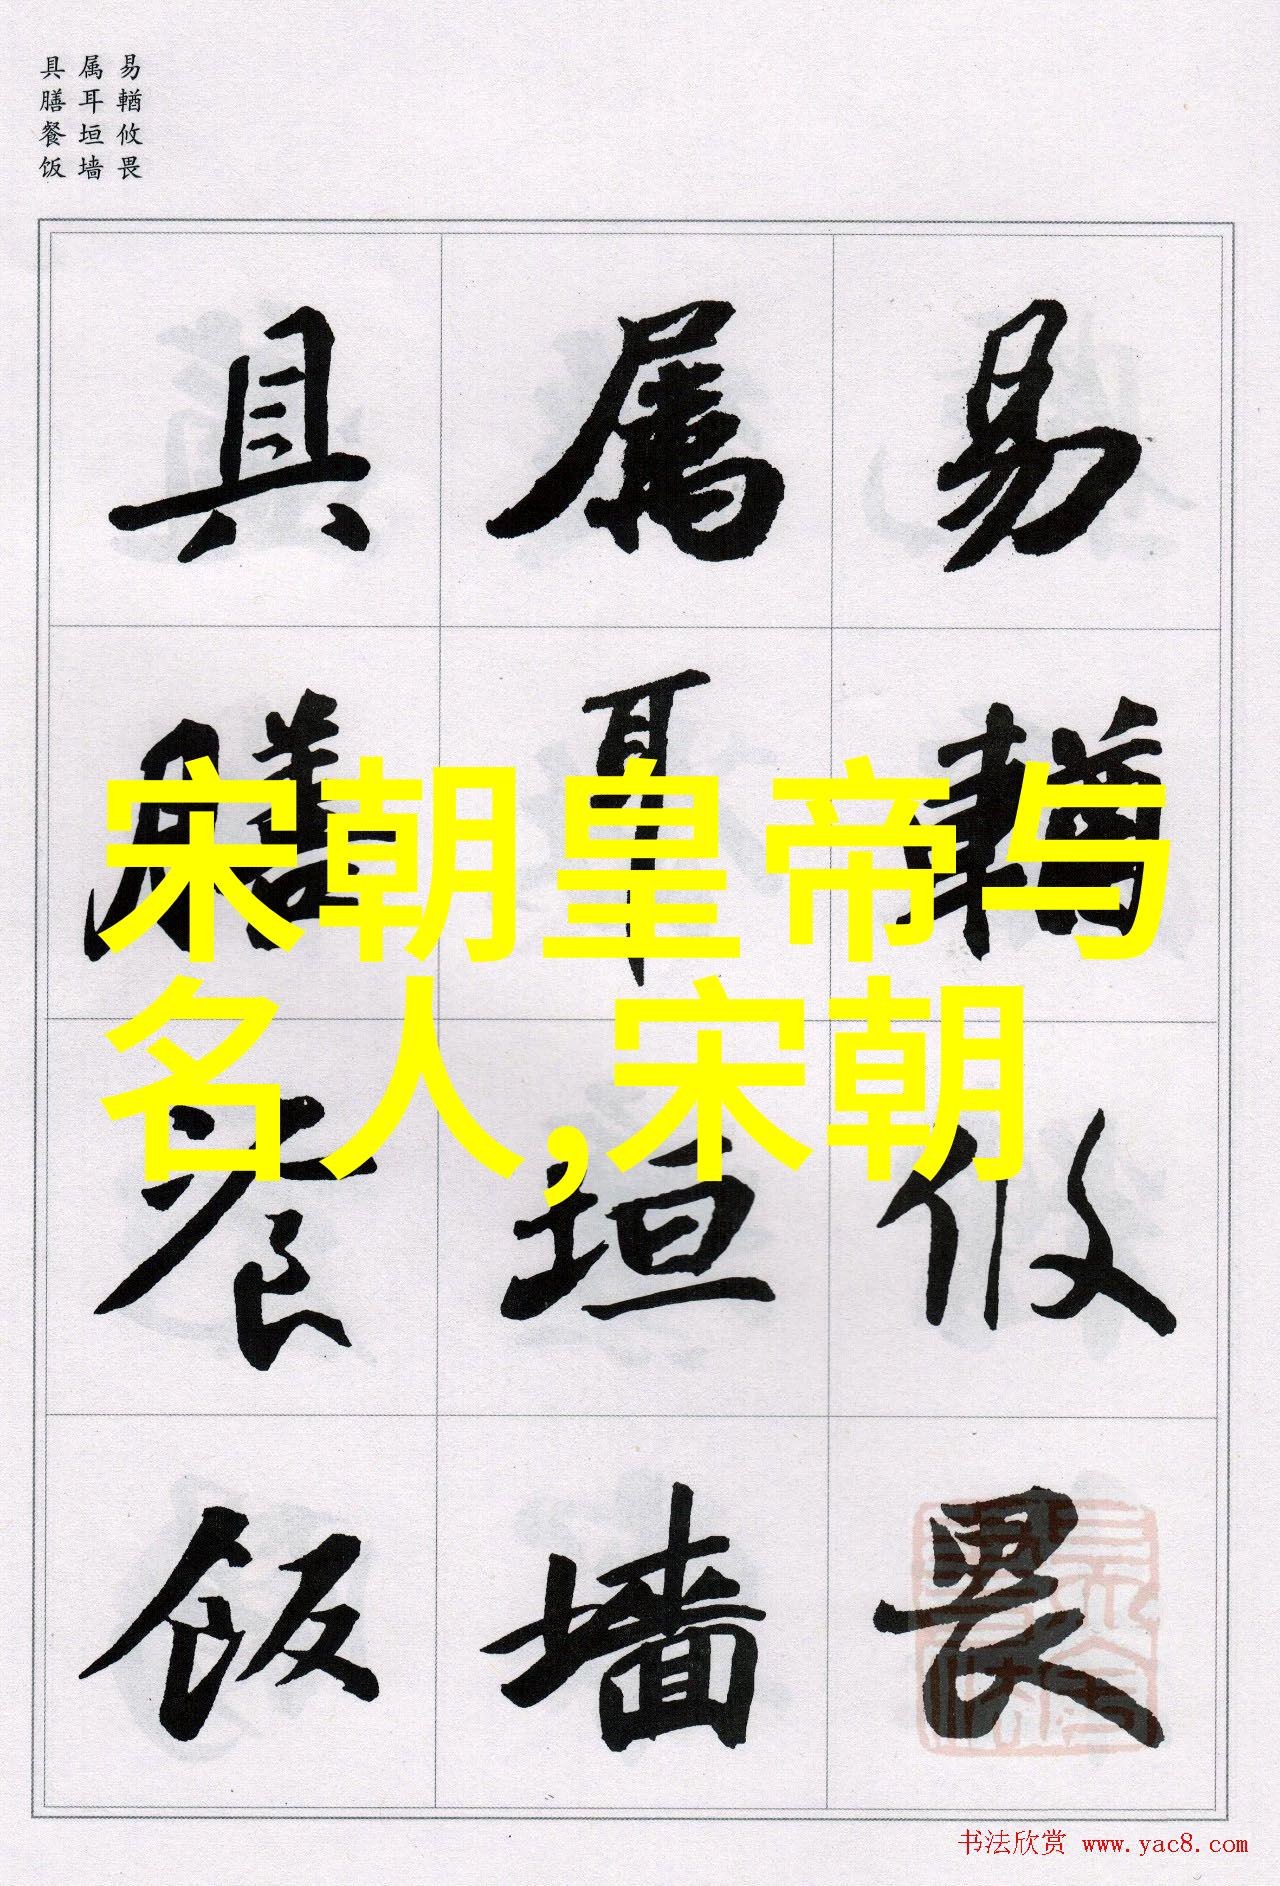 易輶攸畏
属耳垣墙
具膳餐饭
易輶攸畏
属耳垣墙
具膳餐饭
宋朝皇帝与
名人,宋朝
书法欣赏 www.yac8.com